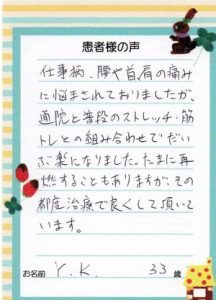 患者様の声
仕事柄、腰や首、肩の痛み
に悩まされておりましたが、
通院と普段のストレッチ・筋
トレとの組み合わせでだい
ぶ楽になりました。たまに再
燃することもありますが、その
都度治療で良くして頂いて
います。
お名前 Y.K. 33歳